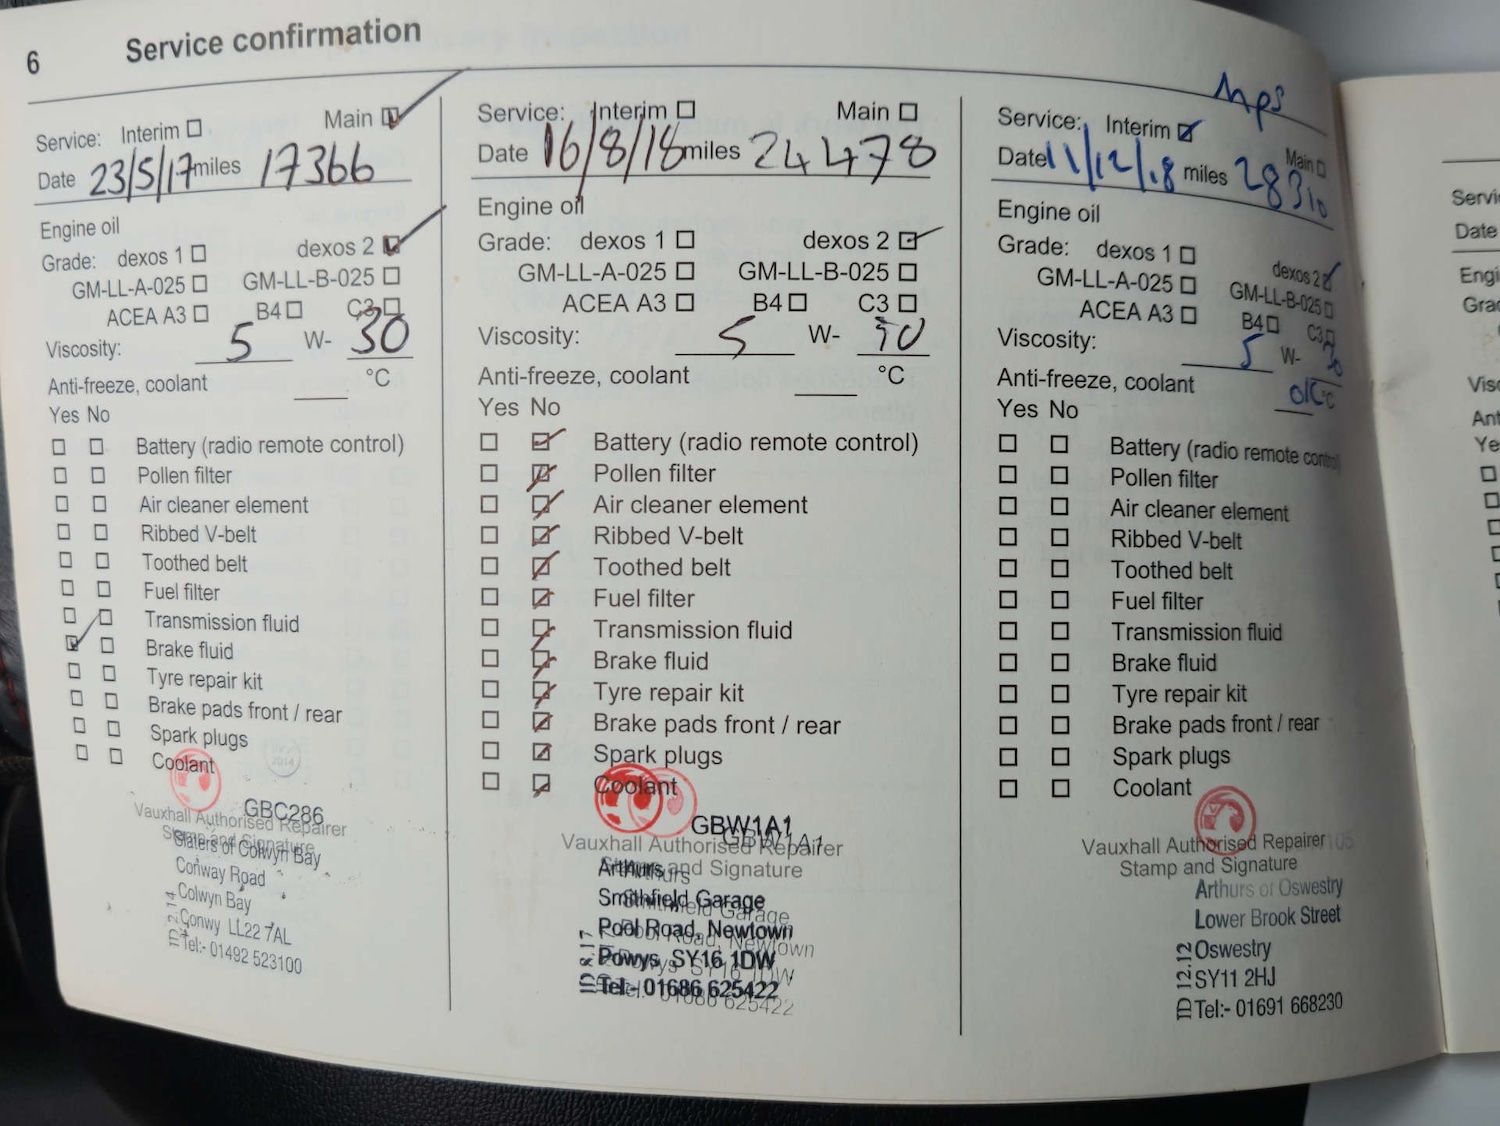 6 Service confirmation
Service: Interim Main
Date 23/5/17 miles 17366
Engine oil
Grade: dexos 1 dexos 2
GM-LL-A-025 GM-LL-B-025
ACEA A3 B4 C3
Viscosity: 5 W- 30
Anti-freeze, coolant °C
Yes No
Battery (radio remote control)
Pollen filter
Air cleaner element
Ribbed V-belt
Toothed belt
Fuel filter
Transmission fluid
Brake fluid
Tyre repair kit
Brake pads front / rear
Spark plugs
Coolant
GBC286
Vauxhall Authorised Repairer
Stamp and Signature
Slaters of Colwyn Bay
Conway Road
Colwyn Bay
Conwy LL22 7AL
Tel:- 01492 523100
Service: Interim Main
Date 16/8/18 miles 24478
Engine oil
Grade: dexos 1 dexos 2
GM-LL-A-025 GM-LL-B-025
ACEA A3 B4 C3
Viscosity: 5 W- 30
Anti-freeze, coolant °C
Yes No
Battery (radio remote control)
Pollen filter
Air cleaner element
Ribbed V-belt
Toothed belt
Fuel filter
Transmission fluid
Brake fluid
Tyre repair kit
Brake pads front / rear
Spark plugs
Coolant
GBW1A1
Vauxhall Authorised Repairer
Stamp and Signature
Arthurs
Smithfield Garage
Pool Road, Newtown
Powys SY16 1DW
Tel:- 01686 625422
Service: Interim Main
Date 11/12/18 miles 28310
Engine oil
Grade: dexos 1 dexos 2
GM-LL-A-025 GM-LL-B-025
ACEA A3 B4 C3
Viscosity: 5 W- 30
Anti-freeze, coolant °C
Yes No
Battery (radio remote control)
Pollen filter
Air cleaner element
Ribbed V-belt
Toothed belt
Fuel filter
Transmission fluid
Brake fluid
Tyre repair kit
Brake pads front / rear
Spark plugs
Coolant
Vauxhall Authorised Repairer
Stamp and Signature
Arthurs of Oswestry
Lower Brook Street
Oswestry
SY11 2HJ
ID 12.12
Tel:- 01691 668230
Date